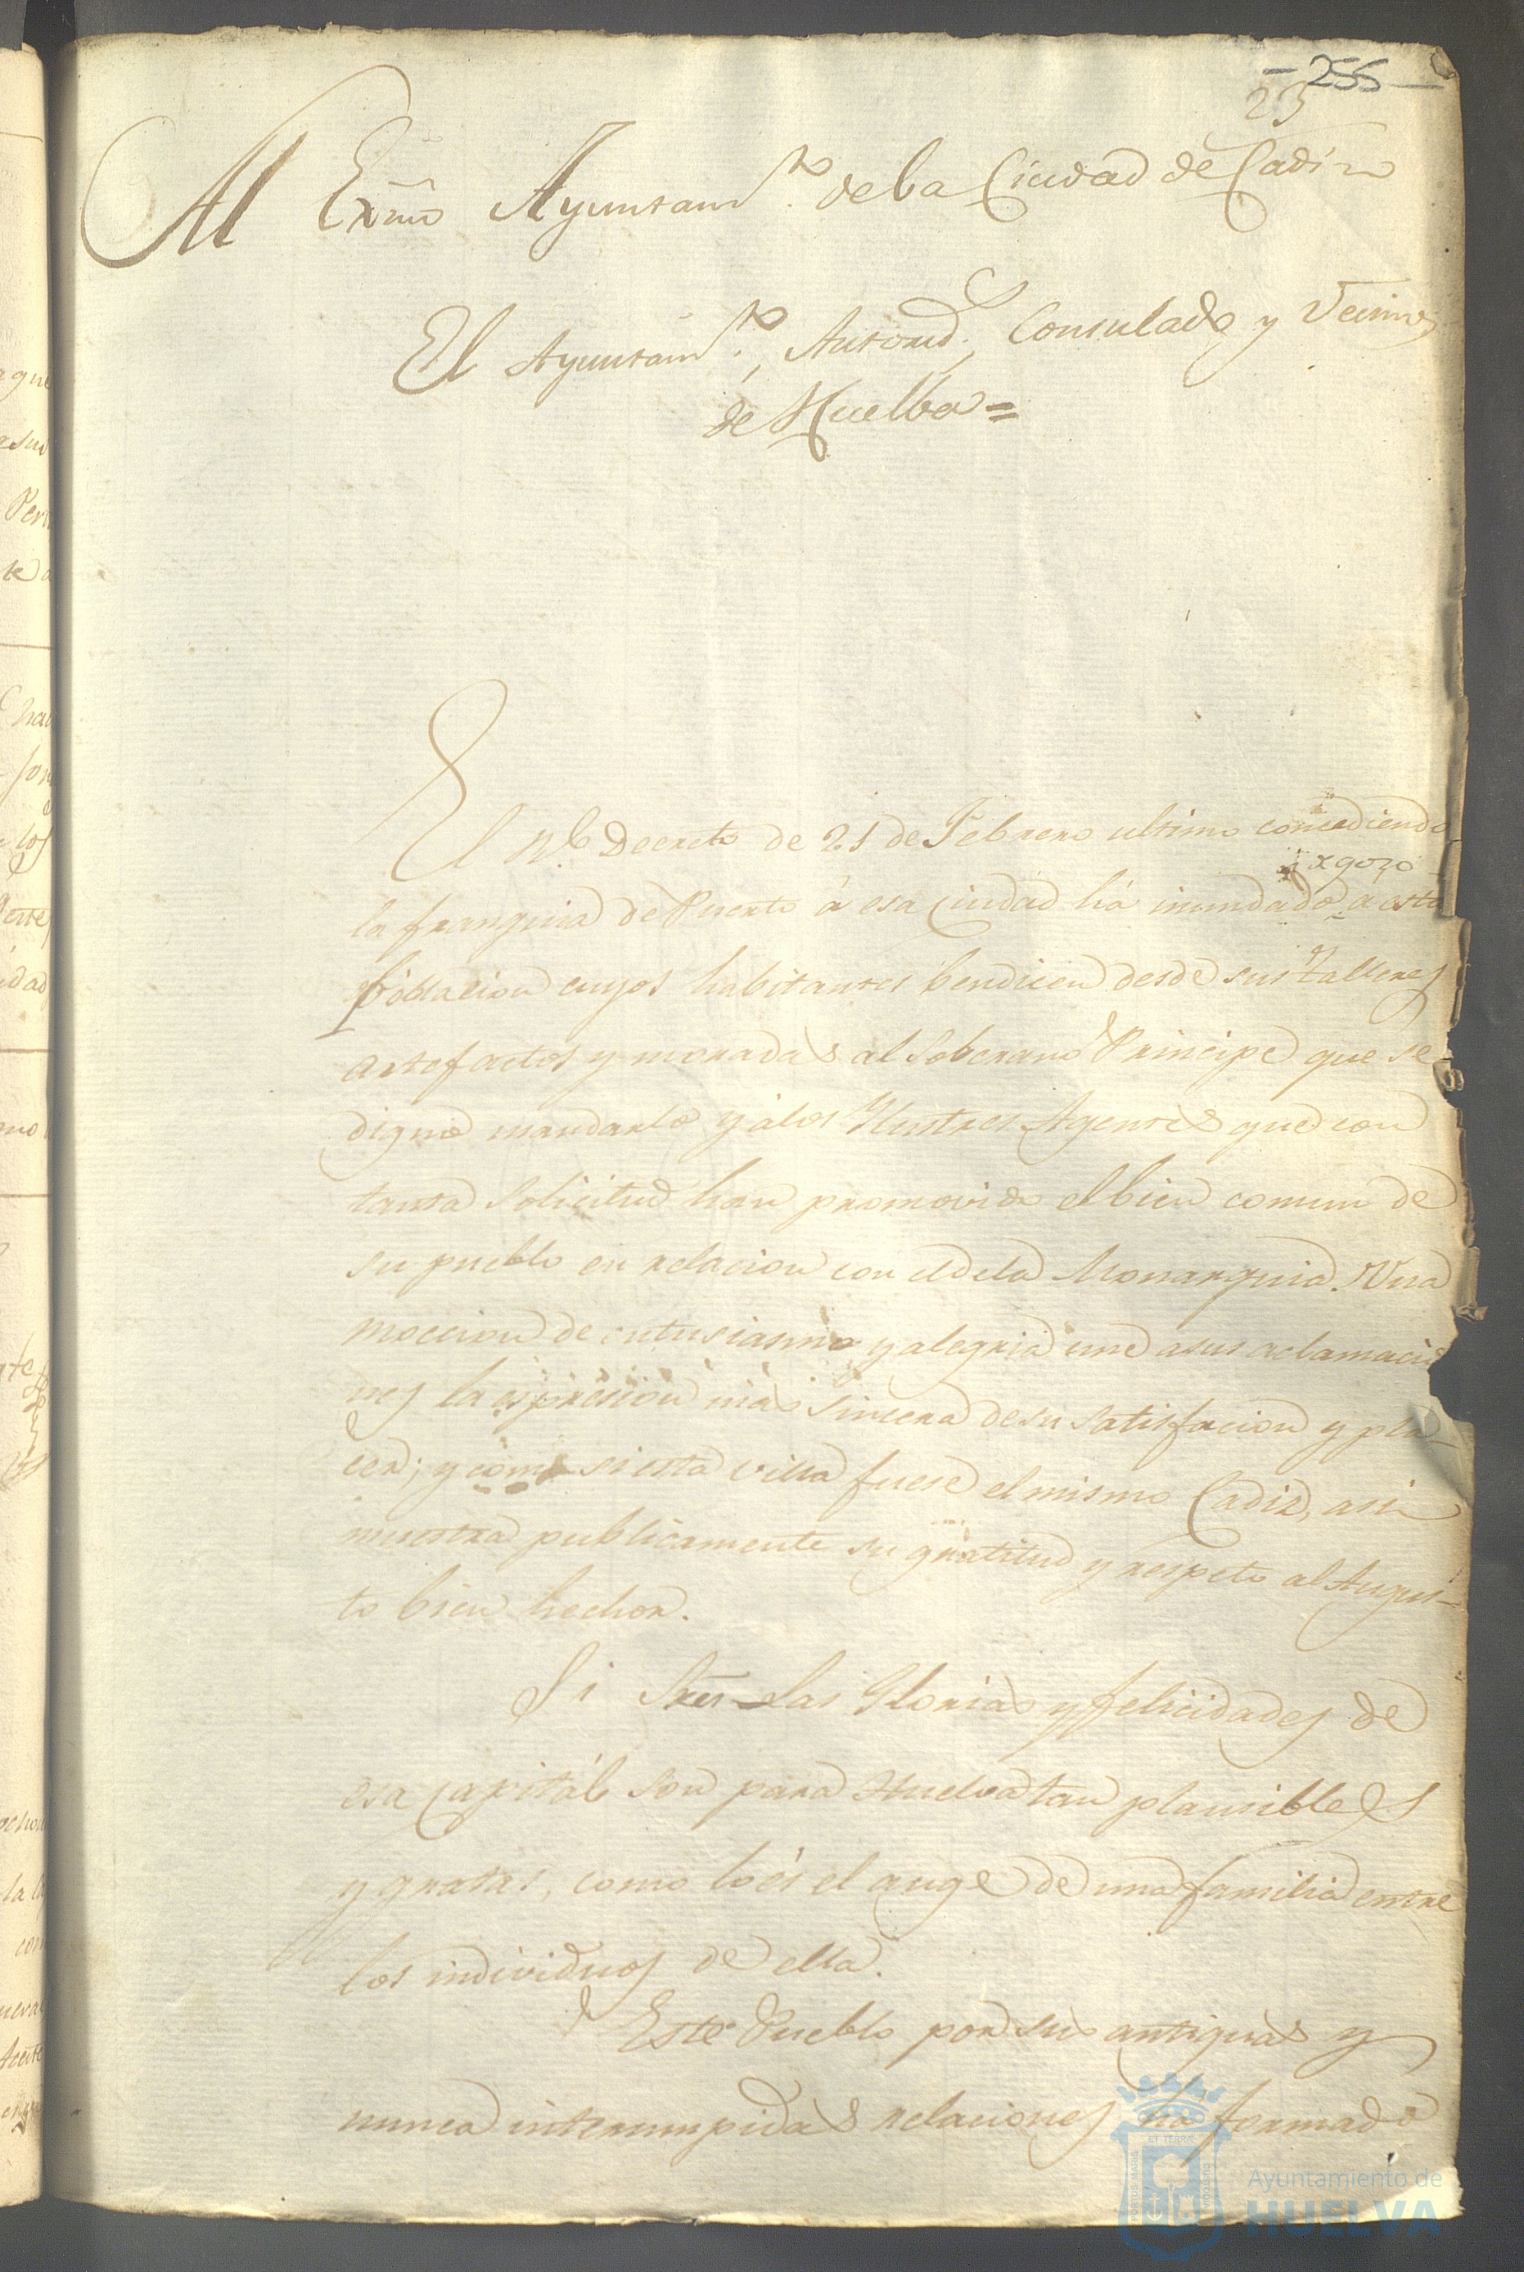 - 255 -
23
Al Exmo Ayuntamto. de la Ciudad de Cadiz
El Ayuntamto., Autorid.s, Consulado y Vecinos
de Huelba =
El Rl. Decreto de 21 de Febrero ultimo concediendo
x gozo
la franquia de Puerto á esa Ciudad há inundado a esta
Poblacion cuyos habitantes bendicen desde sus Talleres
artefactos y moradas al Soberano Principe que se
dignó mandarlo y á los Ylustres Agentes que con
tanta Solicitud han promovido el bien comun de
su pueblo en relacion con el de la Monarquia. Una
moccion de entusiasmo y alegria une a sus aclamacio
nes la espresion más sincera de su satisfacion y pla-
cer; y como si esta villa fuese el mismo Cadiz, asi
muestra publicamente su gratitud y respeto al Augus-
to bien hechor.
Si Sres. las Glorias y felicidades de
esa Capitál son para Huelva tan plausibles
y gratas, como lo és el auge de una familia entre
los individuos de ella.
Este Pueblo por sus antiguas y
nunca interrumpidas relaciones ha formado
Ayuntamiento de
HUELVA